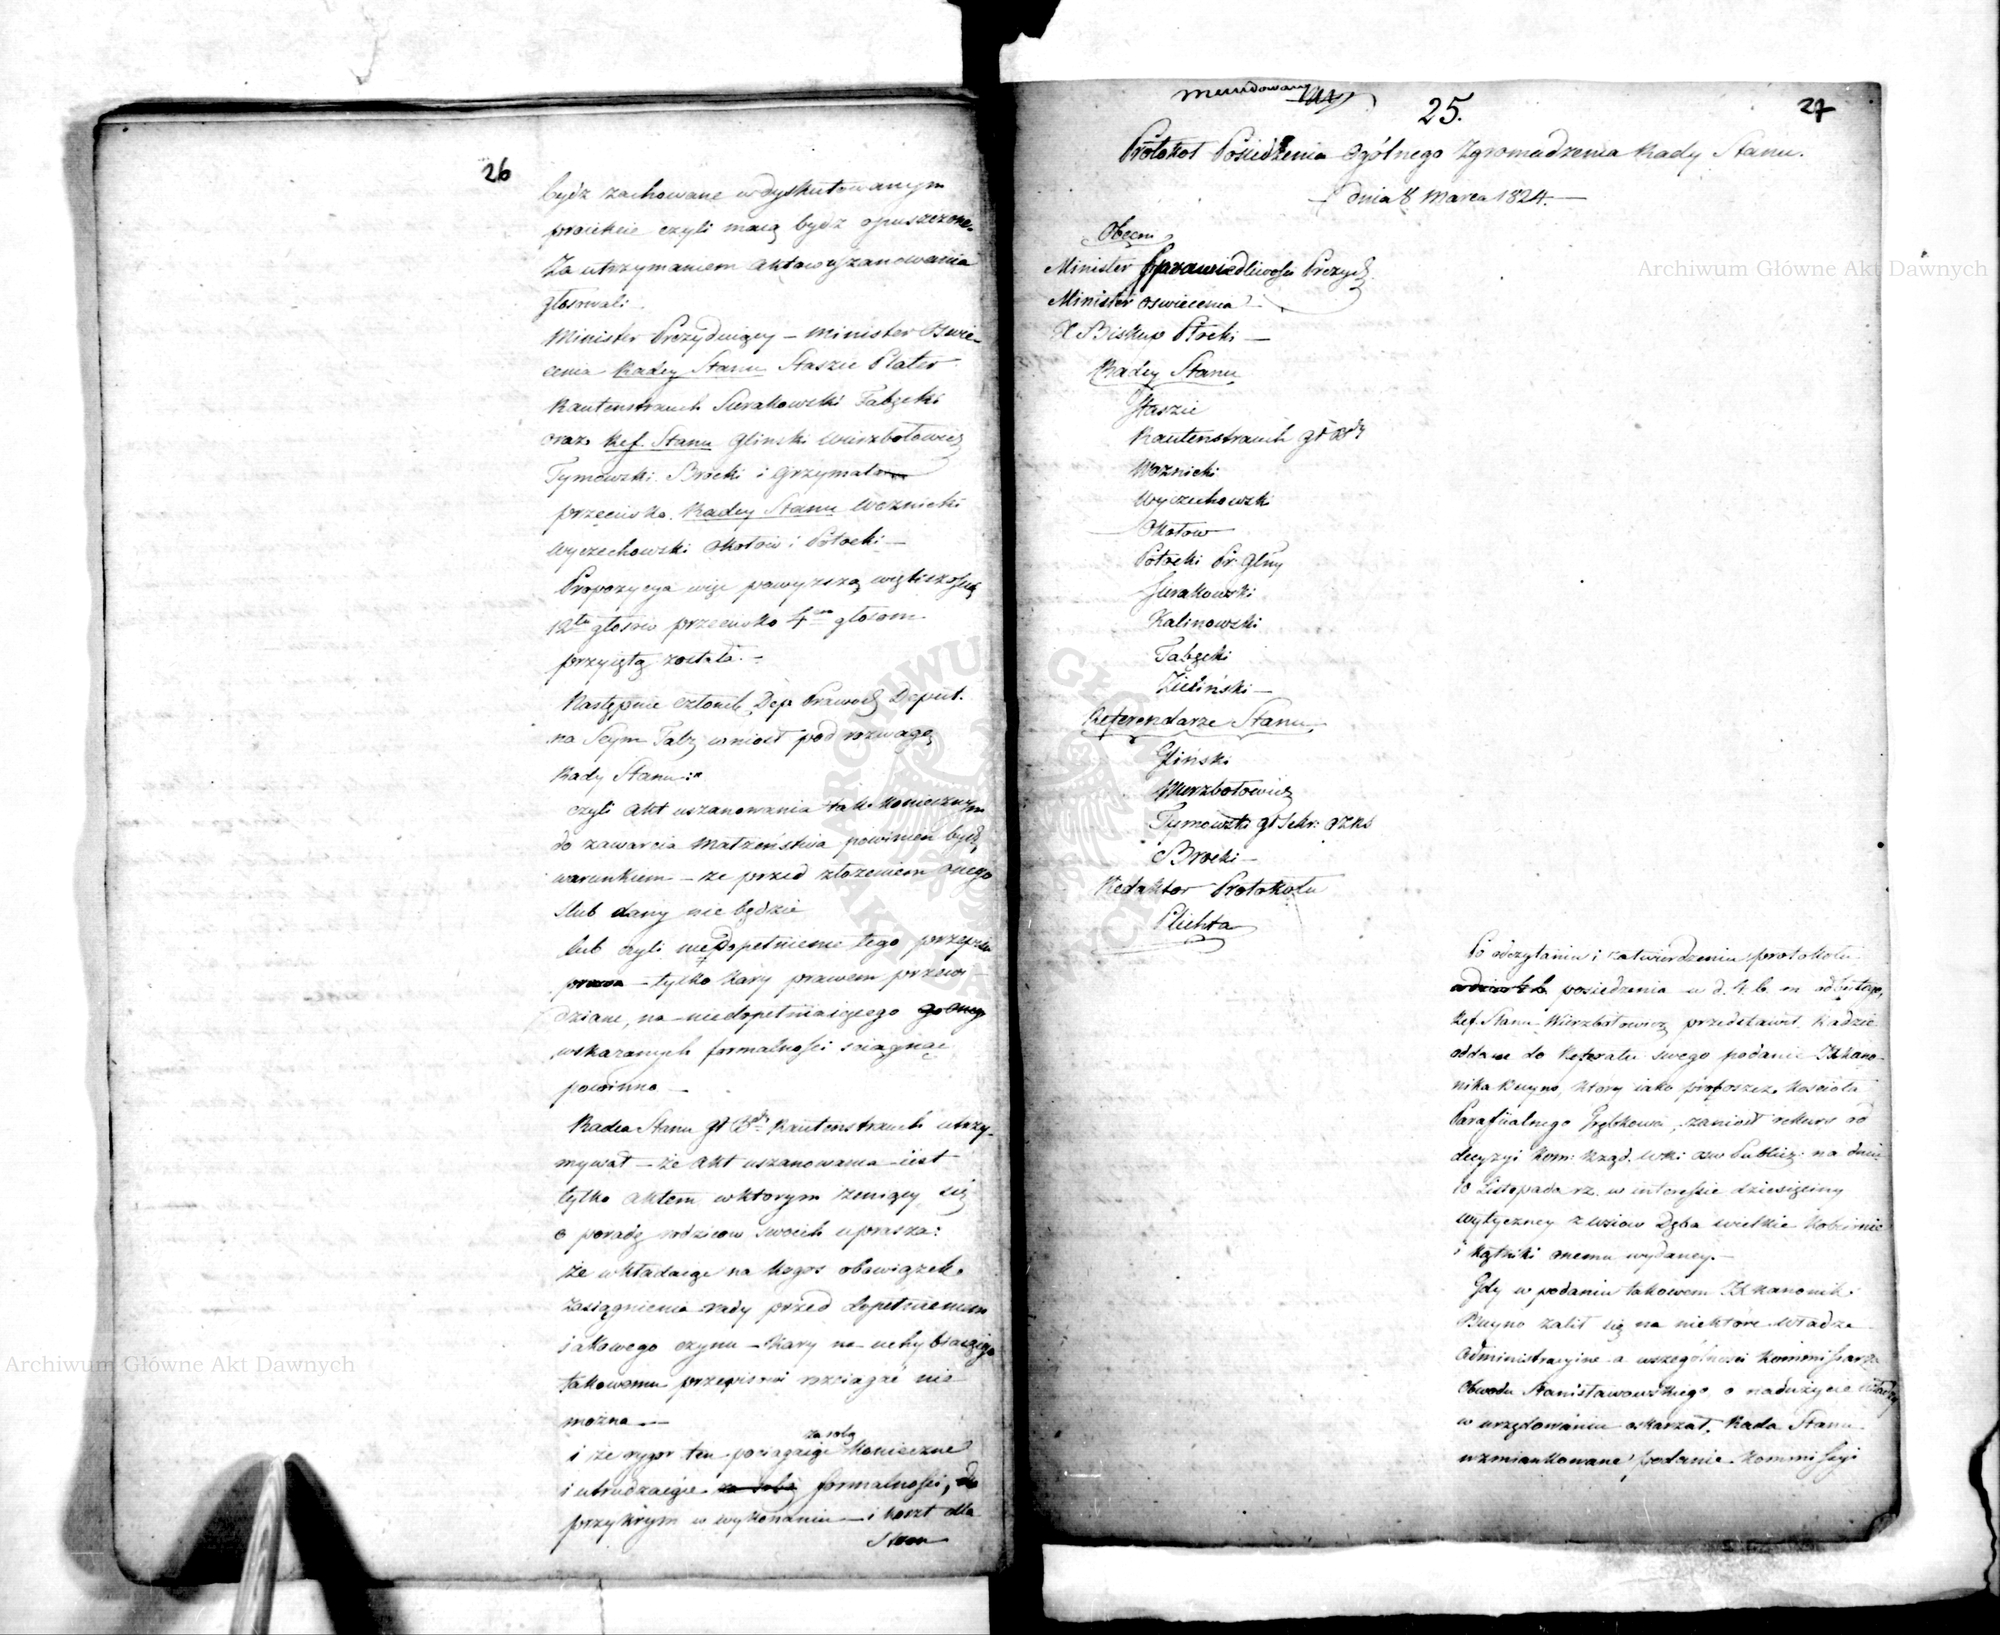 26
bydz zachowane w dyskutowanym
proiekcie czyli maią bydz opuszczone.
Za utrzymaniem aktów uszanowania
głosowali
Minister Prezyduiący – Minister Oswie-
cenia Radcy Stanu Staszic Plater
Rautenstrauch Sierakowski Tabęcki
oraz Ref. Stanu Glinski Wierzbołowicz
Tymowski Brocki i Grzymała
przeciwko Radcy Stanu Woznicki
Wyczechowski Okołow i Potocki –
Propozycya więc powyższa większością
12tu głosów przeciwko 4em głosom
przyiętą została. –
Następnie członek Dep. Prawod. Deput.
na Seym Tabę. wniosł pod rozwagę
Rady Stanu:
czyli akt uszanowania tak koniecznym
do zawarcia małżeństwa powinien bydź
warunkiem – że przed złożeniem onego
slub dany nie będzie
lub czyli niedopełnienie tego przepisu
– tylko kary prawem przewi-
dziane, na niedopełniaiącego
wskazanych formalności sciągnąc
powinno –
Radca Stanu Gł Bdy Rautenstrauch utrzy-
mywał – że akt uszanowania iest
tylko aktem w ktorym żeniący się
o poradę rodziców swoich uprasza:
że wkładaiąc na kogos obowiązek
zasiągnienia rady przed dopełnieniem
iakowego czynu – kary na uchybiaiącego
takowemu przepisowi rozciągać nie
można –
za sobą
i że rygor ten pociągaiąc konieczne
i utrudzaiące za sobą formalności,
przykrym w wykonaniu – i koszt dla
Stron
mundowany
25.
27
Protokoł Posiedzenia Ogólnego Zgromadzenia Rady Stanu.
dnia 8 Marca 1824. –
Obecni
Minister Sprawiedliwości Prezyd.
Minister Oswiecenia
X Biskup Płocki –
Radcy Stanu
Staszic
Rautenstrauch Gł Bdy
Woznicki
Wyczechowski
Okołow
Potocki Pr: Glny
Sierakowski
Kalinowski
Tabęcki
Zieliński –
Referendarze Stanu
Gliński
Wierzbołowicz
Tymowski Gł Sekr:
Brocki –
Redaktor Protokołu
Plichta
Po odczytaniu i zatwierdzeniu protokołu
posiedzenia u d. 4. b. m odbytego,
Ref. Stanu Wierzbołowicz przedstawił Radzie
oddane do Referatu swego podanie X Kano-
nika Buyno, ktory iako proboszcz Kościoła
Parafialnego Grębkowa, zaniosł rekurs od
decyzyi Kom: Rząd. Wki Osw Publicz: na dniu
10 Listopada rz. w interessie dziesięciny
wytyczney z wsiow Dęba wielkie Kobiernie
i Kątniki onemu wydaney. –
Gdy w podaniu takowem X Kanonik
Buyno żalił się na niektóre władze
administracyine a wszególności Kommissarza
Obwodu Stanisławowskiego o nadużycie władzy
w urzędowaniu oskarżał, Rada Stanu
wzmiankowane podanie Kommissyi
Archiwum Główne Akt Dawnych
Archiwum Główne Akt Dawnych
ARCHIWUM GŁÓWNE AKT DAWNYCH